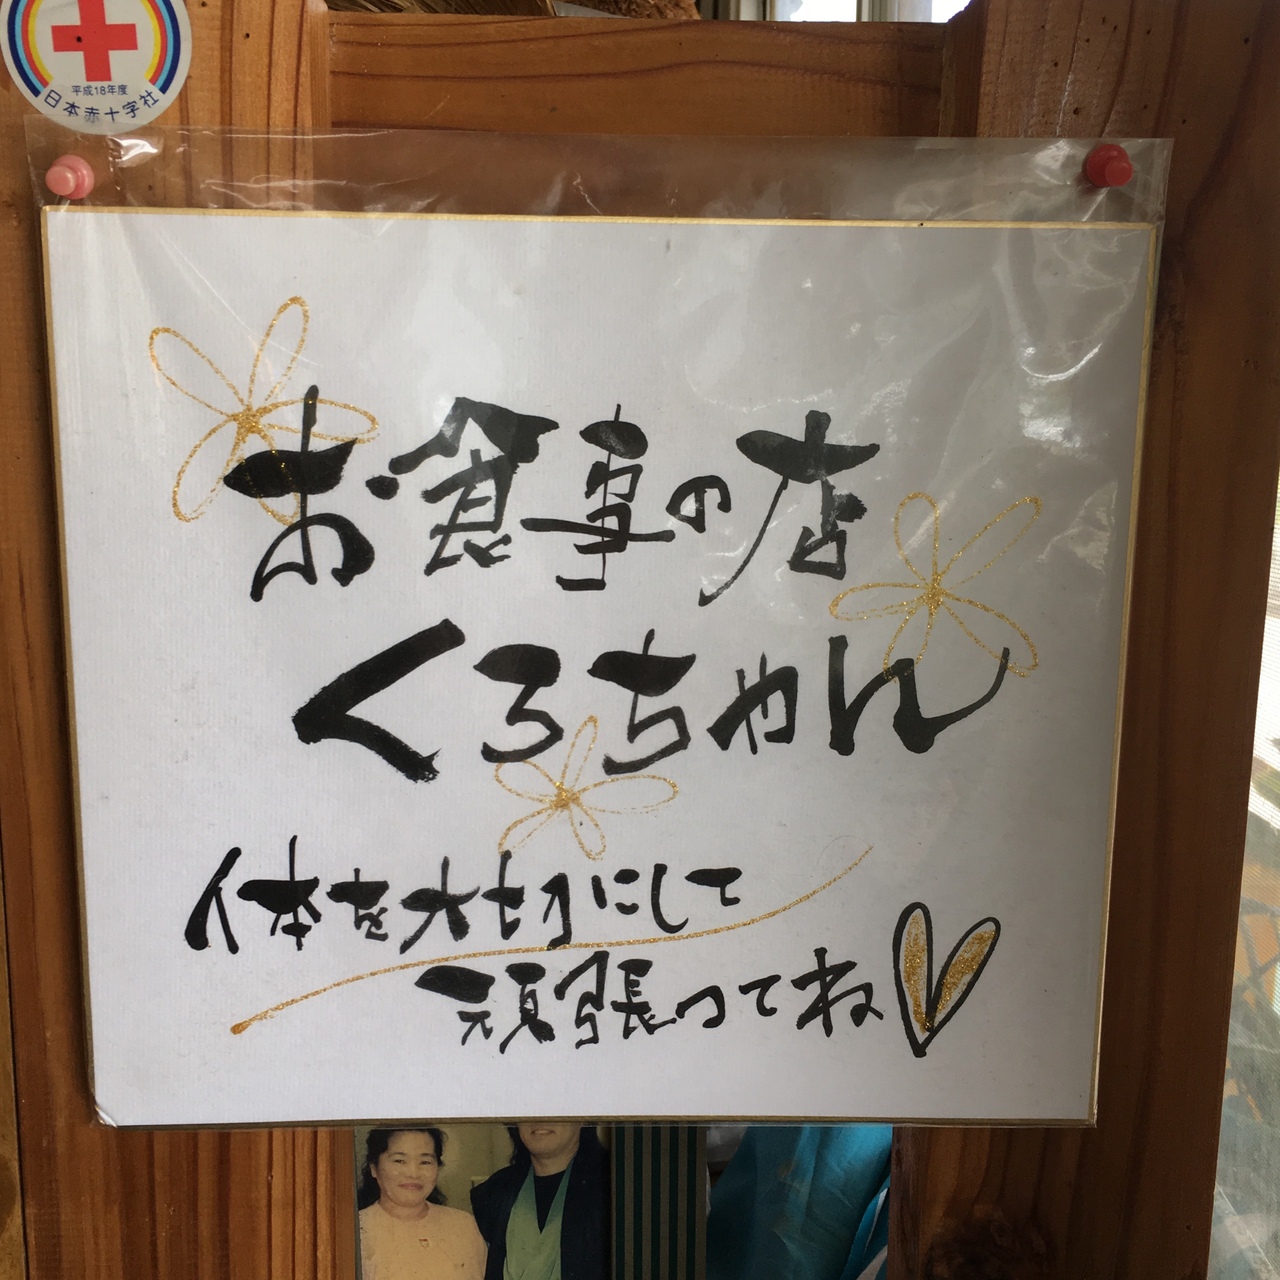 平成18年度
日本赤十字社
お食事の店
くろちゃん
体を大切にして
頑張ってね